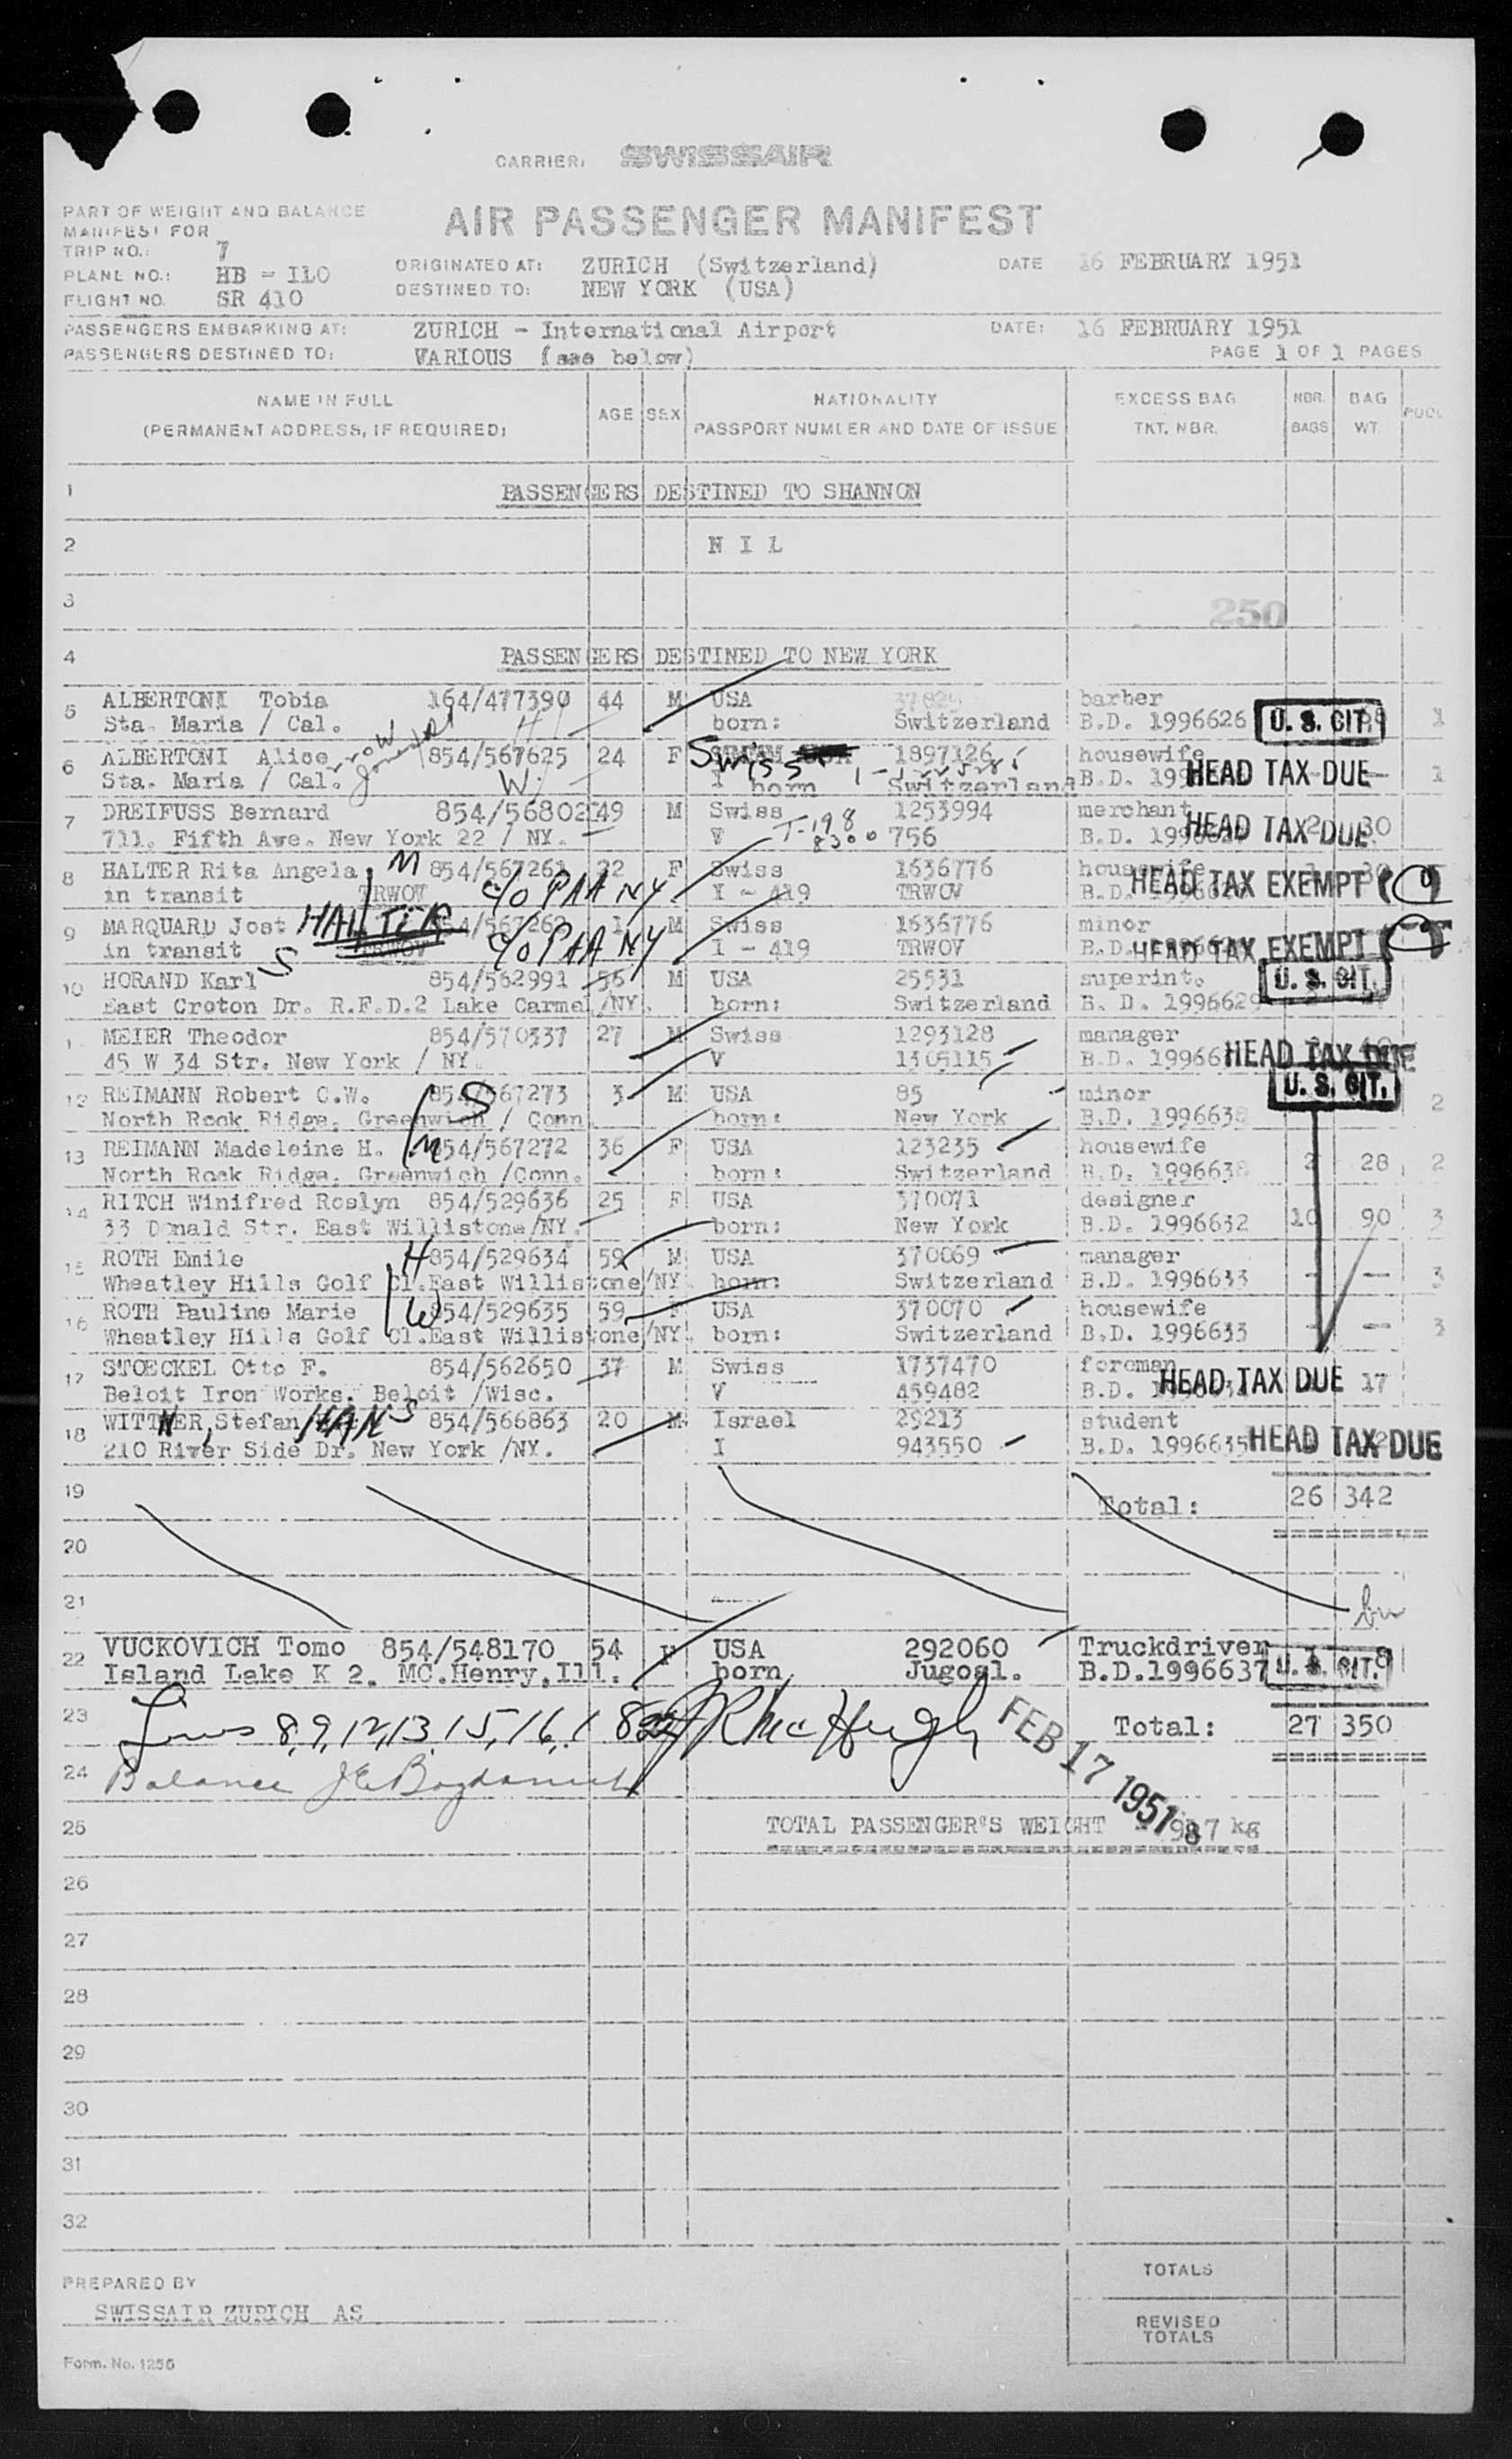 CARRIER: SWISSAIR
PART OF WEIGHT AND BALANCE
MANIFEST FOR
AIR PASSENGER MANIFEST
TRIP NO.: 7
PLANE NO.: HB - ILO
FLIGHT NO. SR 410
ORIGINATED AT: ZURICH (Switzerland) DATE 16 FEBRUARY 1951
DESTINED TO: NEW YORK (USA)
PASSENGERS EMBARKING AT: ZURICH - International Airport DATE: 16 FEBRUARY 1951
PASSENGERS DESTINED TO: VARIOUS (see below) PAGE 1 OF 1 PAGES
NAME IN FULL AGE SEX NATIONALITY EXCESS BAG NBR. BAG POOL
(PERMANENT ADDRESS, IF REQUIRED) PASSPORT NUMBER AND DATE OF ISSUE TKT. NBR. BAGS WT.
1 PASSENGERS DESTINED TO SHANNON
2 N I L
3 250
4 PASSENGERS DESTINED TO NEW YORK
5 ALBERTONI Tobia 164/477390 44 M USA barber
Sta. Maria / Cal. H born: Switzerland B.D. 1996626 U. S. CIT. 1
6 ALBERTONI Alice 854/567625 24 F Swiss 1897126 housewife
Sta. Maria / Cal. W. I born Switzerland B.D. HEAD TAX DUE 1
7 DREIFUSS Bernard 854/56802 49 M Swiss 1253994 merchant
711. Fifth Ave. New York 22 / NY. V T-198 8300 756 B.D. HEAD TAX DUE 2 30
8 HALTER Rita Angela M 854/567261 22 F Swiss 1636776 housewife
in transit TRWOV c/o PAA NY I - 419 TRWOV B.D. HEAD TAX EXEMPT
9 MARQUARD Jost HALTER 854/567262 1 M Swiss 1636776 minor
in transit S TRWOV c/o PAA NY I - 419 TRWOV B.D. HEAD TAX EXEMPT
10 HORAND Karl 854/562991 56 M USA 25531 superint.
East Croton Dr. R.F.D.2 Lake Carmel /NY. born: Switzerland B. D. 1996629 U. S. CIT.
MEIER Theodor 854/570337 27 M Swiss 1293128 manager
45 W 34 Str. New York / NY. V 1305115 B.D. HEAD TAX DUE
12 REIMANN Robert C.W. S 854/567273 3 M USA 85 minor U. S. CIT.
North Rock Ridge. Greenwich / Conn born: New York B.D. 1996638 2
13 REIMANN Madeleine H. M 854/567272 36 F USA 123235 housewife
North Rock Ridge. Greenwich /Conn. born: Switzerland B.D. 1996638 2 28 2
14 RITCH Winifred Roslyn 854/529636 25 F USA 370071 designer
33 Donald Str. East Willistone/NY. born: New York B.D. 1996632 10 90 3
15 ROTH Emile H 854/529634 59 M USA 370069 manager
Wheatley Hills Golf Cl.East Willistone/NY born: Switzerland B.D. 1996633 - — 3
16 ROTH Pauline Marie W 854/529635 59 F USA 370070 housewife
Wheatley Hills Golf Cl.East Willistone/NY. born: Switzerland B.D. 1996633 - — 3
17 STOECKEL Otto F. 854/562650 37 M Swiss 1737470 foreman
Beloit Iron Works. Beloit /Wisc. V 459482 B.D. HEAD TAX DUE 17
18 WITTNER, Stefan HANS 854/566863 20 M Israel 29213 student
210 River Side Dr. New York /NY. I 943550 B.D. 1996635 HEAD TAX DUE
19 Total: 26 342
20
21
22 VUCKOVICH Tomo 854/548170 54 USA 292060 Truckdriver
Island Lake K 2. MC.Henry,Ill. born Jugosl. B.D.1996637 U. S. CIT. 8
23 Lines 8, 9, 12, 13, 15, 16, JR McHugh FEB 17 1951 Total: 27 350
24 Balance
25 TOTAL PASSENGER'S WEIGHT kg
26
27
28
29
30
31
32
TOTALS
PREPARED BY
SWISSAIR ZURICH AS
REVISED
TOTALS
Form. No. 1256